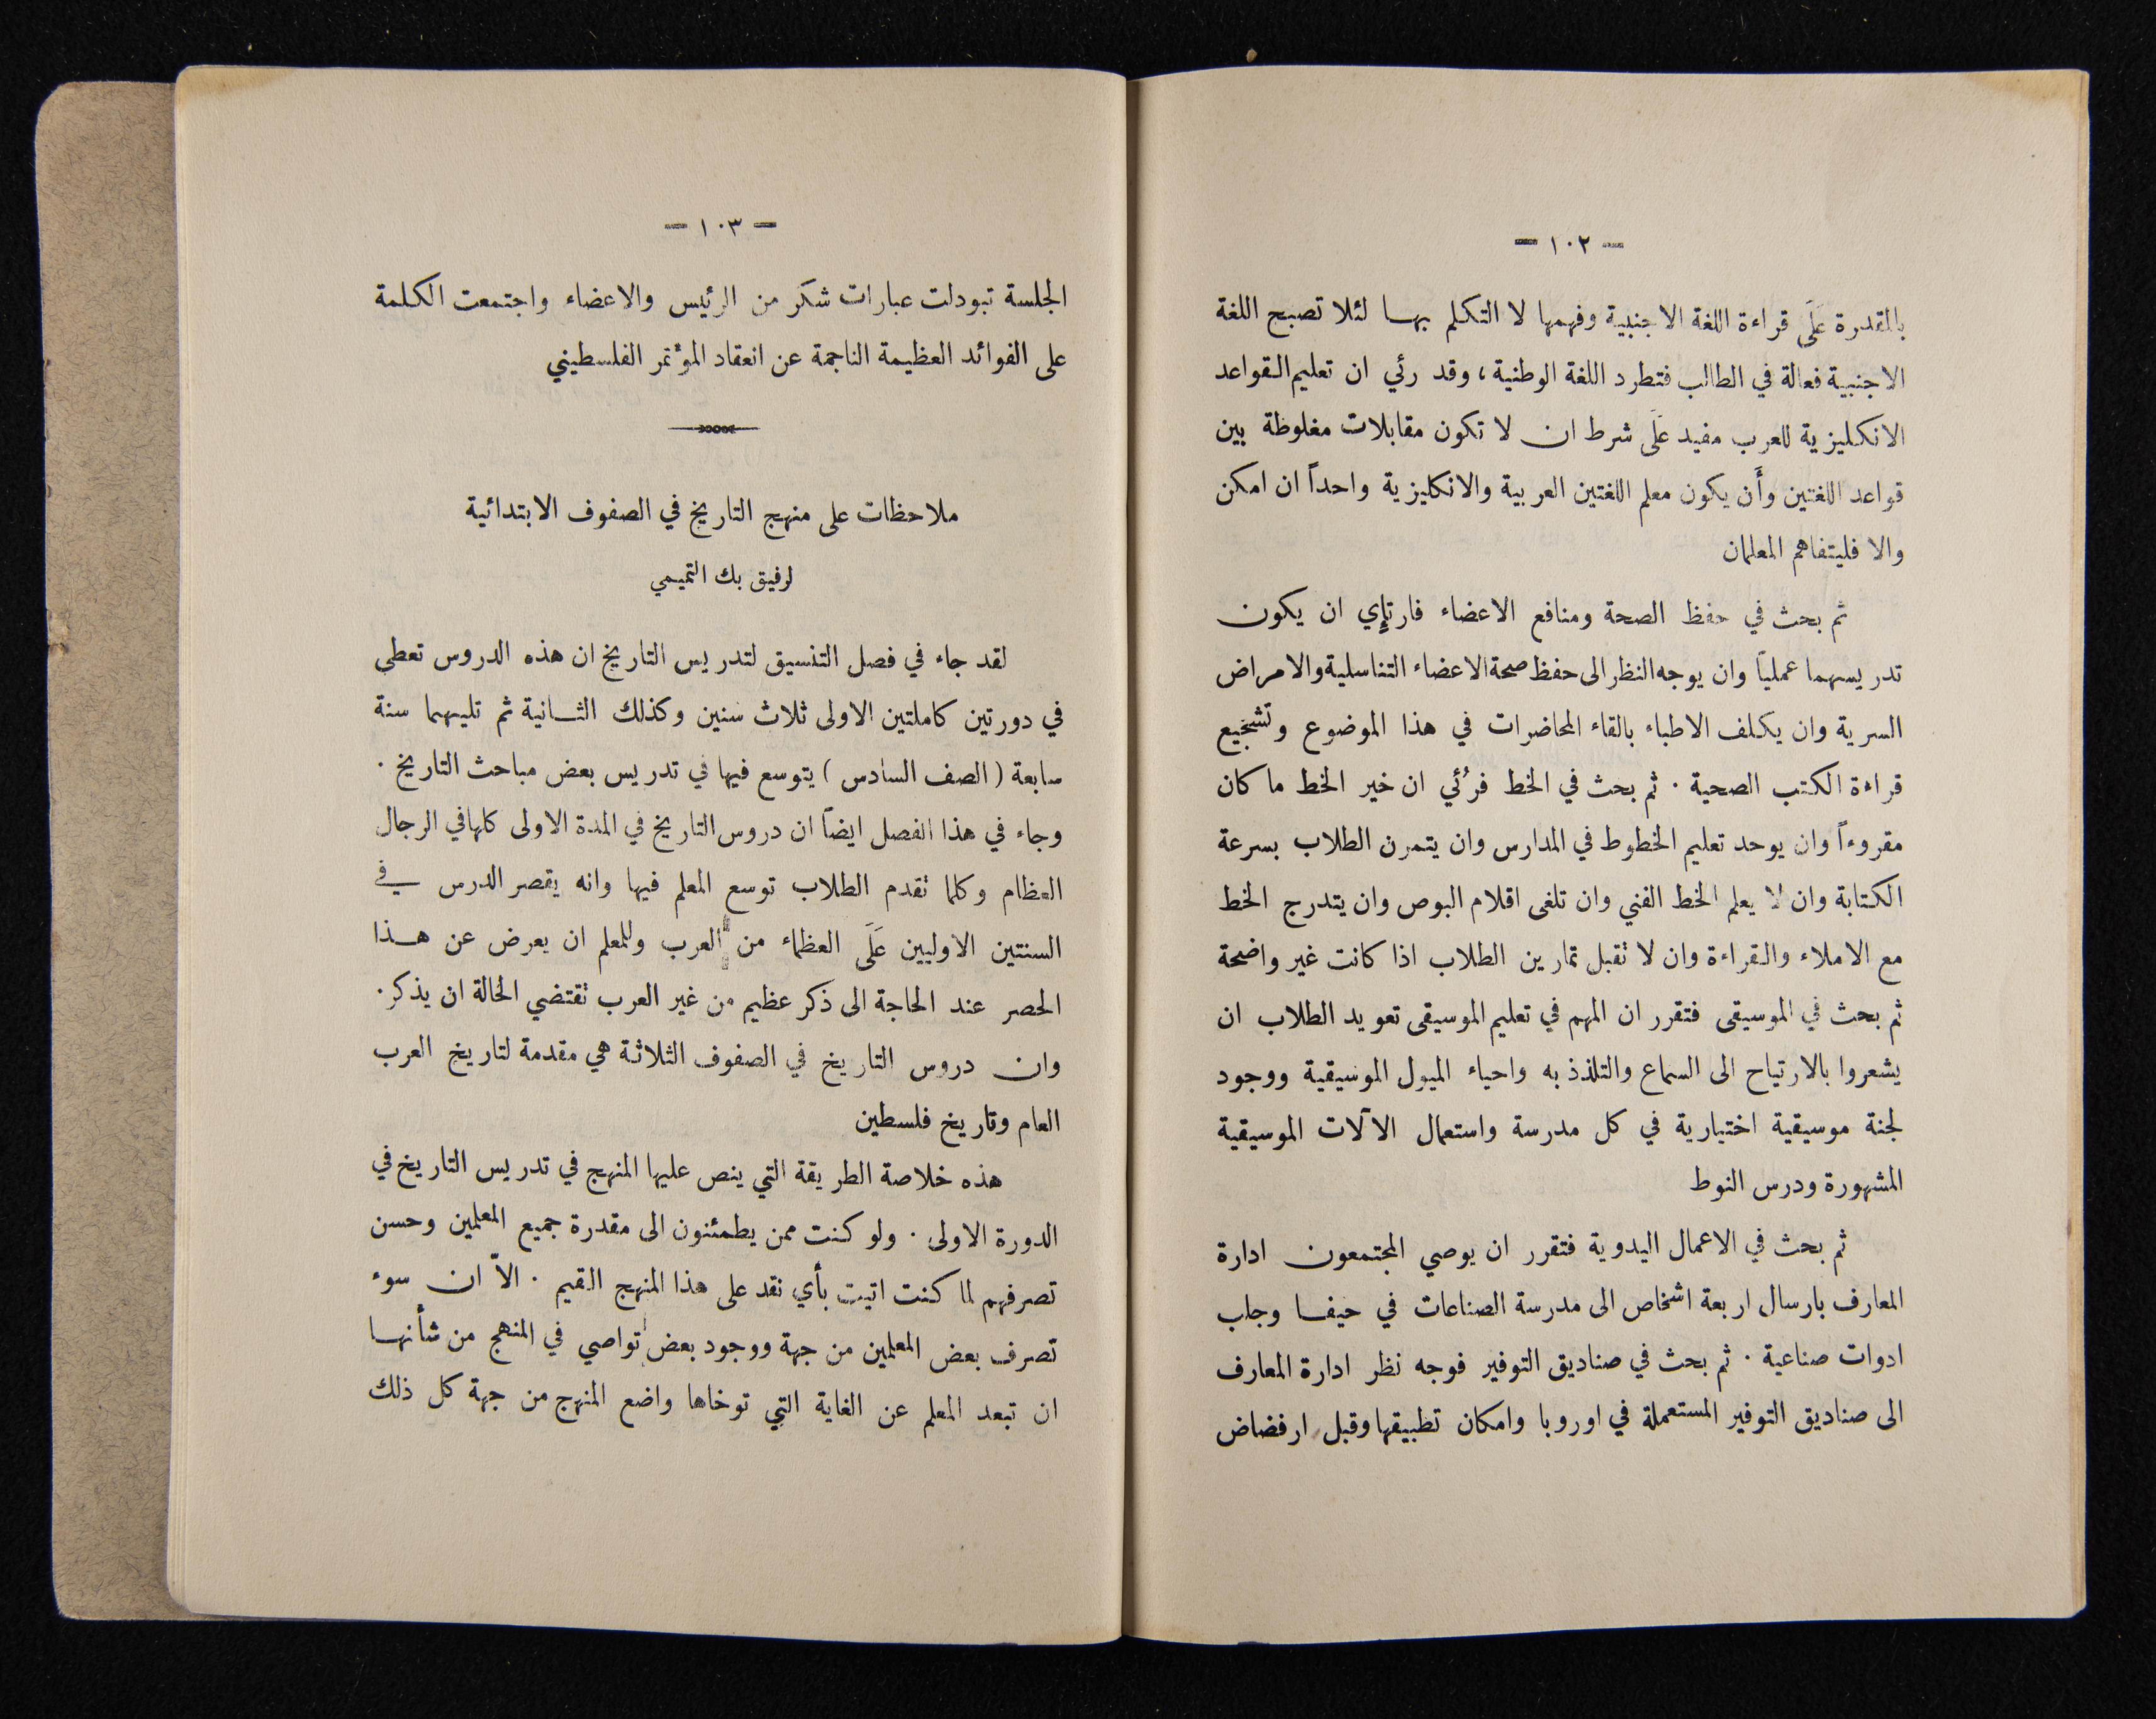 — ١٠٢ —
بالمقدرة عَلَى قراءة اللغة الاجنبية وفهمها لا التكلم بها لئلا تصبح اللغة
الاجنبية فعالة في الطالب فتطرد اللغة الوطنية، وقد رئي ان تعليم القواعد
الانكليزية للعرب مفيد عَلَى شرط ان لا تكون مقابلات مغلوظة بين
قواعد اللغتين وأَن يكون معلم اللغتين العربية والانكليزية واحداً ان امكن
والا فليتفاهم المعلمان
ثم بحث في حفظ الصحة ومنافع الاعضاء فارتإي ان يكون
تدريسهما عمليًا وان يوجه النظر الى حفظ صحة الاعضاء التناسلية والامراض
السرية وان يكلف الاطباء بالقاء المحاضرات في هذا الموضوع وتشجيع
قراءة الكتب الصحية . ثم بحث في الخط فرُئي ان خير الخط ما كان
مقروءاً وان يوحد تعليم الخطوط في المدارس وان يتمرن الطلاب بسرعة
الكتابة وان لا يعلم الخط الفني وان تلغى اقلام البوص وان يتدرج الخط
مع الاملاء والقراءة وان لا تقبل تمارين الطلاب اذا كانت غير واضحة
ثم بحث في الموسيقى فتقرر ان المهم في تعليم الموسيقى تعويد الطلاب ان
يشعروا بالارتياح الى السماع والتلذذ به واحياء الميول الموسيقية ووجود
لجنة موسيقية اختيارية في كل مدرسة واستعمال الآلات الموسيقية
المشهورة ودرس النوط
ثم بحث في الاعمال اليدوية فتقرر ان يوصي المجتمعون ادارة
المعارف بارسال اربعة اشخاص الى مدرسة الصناعات في حيفا وجلب
ادوات صناعية . ثم بحث في صناديق التوفير فوجه نظر ادارة المعارف
الى صناديق التوفير المستعملة في اوروبا وامكان تطبيقها وقبل ارفضاض
— ١٠٣ —
الجلسة تبودلت عبارات شكر من الرئيس والاعضاء واجتمعت الكلمة
على الفوائد العظيمة الناجمة عن انعقاد المؤتمر الفلسطيني
ملاحظات على منهج التاريخ في الصفوف الابتدائية
لرفيق بك التميمي
لقد جاء في فصل التنسيق لتدريس التاريخ ان هذه الدروس تعطى
في دورتين كاملتين الاولى ثلاث سنين وكذلك الثانية ثم تليهما سنة
سابعة ( الصف السادس ) يتوسع فيها في تدريس بعض مباحث التاريخ .
وجاء في هذا الفصل ايضاً ان دروس التاريخ في المدة الاولى كلها في الرجال
العظام وكلما تقدم الطلاب توسع المعلم فيها وانه يقصر الدرس في
السنتين الاوليين عَلَى العظماء من العرب وللمعلم ان يعرض عن هذا
الحصر عند الحاجة الى ذكر عظيم من غير العرب تقتضي الحالة ان يذكر .
وان دروس التاريخ في الصفوف الثلاثة هي مقدمة لتاريخ العرب
العام وتاريخ فلسطين
هذه خلاصة الطريقة التي ينص عليها المنهج في تدريس التاريخ في
الدورة الاولى . ولو كنت ممن يطمئنون الى مقدرة جميع المعلمين وحسن
تصرفهم لما كنت اتيت بأي نقد على هذا المنهج القيم . الاّ ان سوء
تصرف بعض المعلمين من جهة ووجود بعض تواصي في المنهج من شأنها
ان تبعد المعلم عن الغاية التي توخاها واضع المنهج من جهة كل ذلك